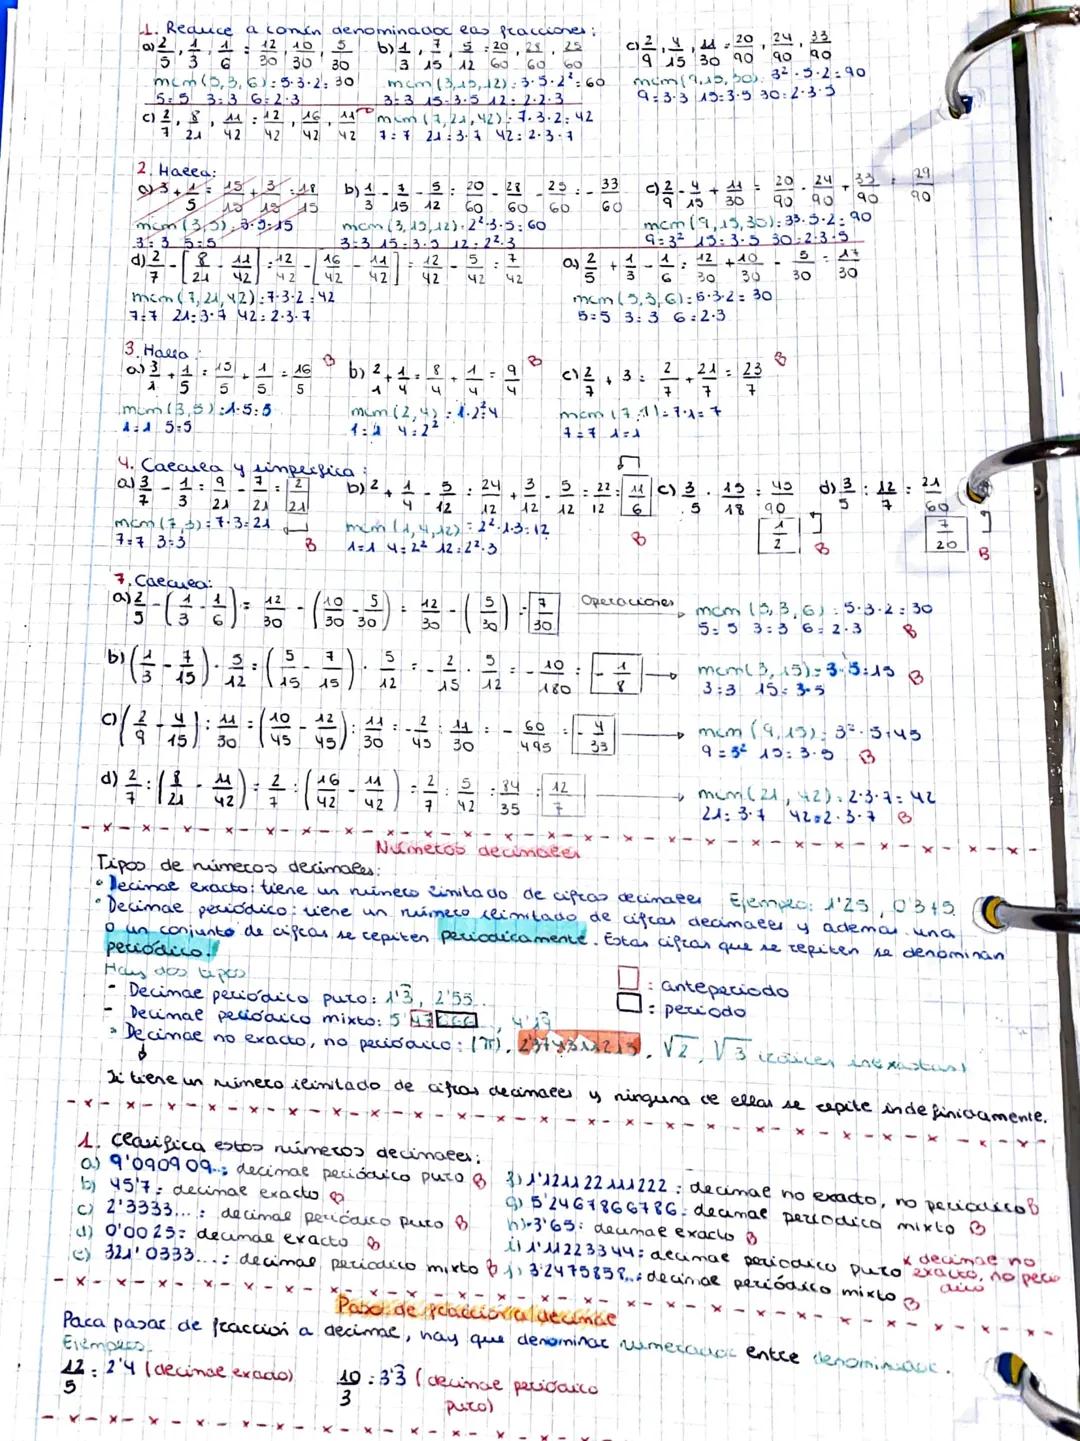 1. Reduce a común denominador las fracciones:
a) 2/5, 1/3, 1/6 = 12/30, 10/30, 5/30   b) 1/3, 7/15, 5/12 = 20/60, 28/60, 25/60   c) 2/9, 4/15, 11/30 = 20/90, 24/90, 33/90
mcm (5,3,6) = 5·3·2 = 30   mcm (3,15,12) = 3·5·2² = 60   mcm (9,15,30) = 3²·5·2 = 90
5=5 3=3 6=2·3   3=3 15=3·5 12=2·2·3   9=3·3 15=3·5 30=2·3·5
c) 2/7, 8/21, 11/42 = 12/42, 16/42, 11/42   mcm (7,21,42) = 7·3·2 = 42
7=7 21=3·7 42=2·3·7
2. Halla:
a) 3 + 1/5 = 15/15 + 3/15 = 18/15   b) 1/3 - 7/15 - 5/12 = 20/60 - 28/60 - 25/60 = - 33/60   c) 2/9 - 4/15 + 11/30 = 20/90 - 24/90 + 33/90 = 29/90
mcm (3,5) = 3·5=15   mcm (3,15,12) = 2²·3·5 = 60   mcm (9,15,30) = 3²·5·2 = 90
3=3 5=5   3=3 15=3·5 12=2²·3   9=3² 15=3·5 30=2·3·5
d) 2/7 - [8/21 - 11/42] = 12/42 - [16/42 - 11/42] = 12/42 - 5/42 = 7/42   a) 2/5 + 1/3 - 1/6 = 12/30 + 10/30 - 5/30 = 17/30
mcm (7,21,42) = 7·3·2 = 42   mcm (5,3,6) = 5·3·2 = 30
7=7 21=3·7 42=2·3·7   5=5 3=3 6=2·3
3. Halla:
a) 3/1 + 1/5 = 15/5 + 1/5 = 16/5 B   b) 2/1 + 1/4 = 8/4 + 1/4 = 9/4 B   c) 2/7 + 3 = 2/7 + 21/7 = 23/7 B
mcm (3,5) = 1·5=5   mcm (2,4) = 1·2²=4   mcm (7,1) = 7·1 = 7
1=1 5=5   1=1 4=2²   7=7 1=1
4. Calcula y simplifica:
a) 3/7 - 1/3 = 9/21 - 7/21 = 2/21   b) 2 + 1/4 - 5/12 = 24/12 + 3/12 - 5/12 = 22/12 = 11/6   c) 3/5 · 15/18 = 45/90   d) 3/5 : 12/7 = 21/60
mcm (7,3) = 7·3=21 B   mcm (1,4,12) = 2²·1·3=12 B   1/2 B   7/20 B
7=7 3=3   1=1 4=2² 12=2²·3
7. Calcula:
a) 2/5 - (1/3 - 1/6) = 12/30 - (10/30 - 5/30) = 12/30 - (5/30) = 7/30   Operaciones → mcm (5,3,6) = 5·3·2 = 30
5=5 3=3 6=2·3 B
b) (1/3 - 7/15) · 5/12 = (5/15 - 7/15) · 5/12 = - 2/15 · 5/12 = - 10/180 = - 1/8 → mcm (3,15) = 3·5=15 B
3=3 15=3·5
c) (2/9 - 4/15) : 11/30 = (10/45 - 12/45) : 11/30 = - 2/45 : 11/30 = - 60/495 = - 4/33 → mcm (9,15) = 3²·5=45
9=3² 15=3·5 B
d) 2/7 : (8/21 - 11/42) = 2/7 : (16/42 - 11/42) = 2/7 : 5/42 = 84/35 = 12/7 → mcm (21,42) = 2·3·7 = 42
21=3·7 42=2·3·7 B
Números decimales
Tipos de números decimales:
• Decimal exacto: tiene un número limitado de cifras decimales Ejemplo: 1'25, 0'375
• Decimal periódico: tiene un número ilimitado de cifras decimales y además una
o un conjunto de cifras se repiten periodicamente. Estas cifras que se repiten se denominan
periódico.
Hay dos tipos
- Decimal periódico puro: 1'3, 2'55...   □: anteperiodo
- Decimal periódico mixto: 5'47666..., 4'17   □: periodo
• Decimal no exacto, no periódico: (π), 2'3743313213, √2, √3 (raíces inexactas)
Si tiene un número ilimitado de cifras decimales y ninguna de ellas se repite indefinidamente.
1. Clasifica estos números decimales:
a) 9'090909...: decimal periódico puro B
b) 45'7: decimal exacto B
c) 2'3333...: decimal periódico puro B
d) 0'0025: decimal exacto B
e) 321'0333...: decimal periodico mixto B
f) 1'121122111222: decimal no exacto, no periodico B
g) 5'2467866786: decimal periodico mixto B
h) -3'65: decimal exacto B
i) 1'11223344: decimal periodico puro x decimal no exacto, no periodico
j) 3'2475858...: decimal periódico mixto B
Pasar de fracción a decimal
Para pasar de fracción a decimal, hay que denominar numerador entre denominador.
Ejemplos
12/5 = 2'4 (decimal exacto)   10/3 = 3'3 (decimal periódico
puro)